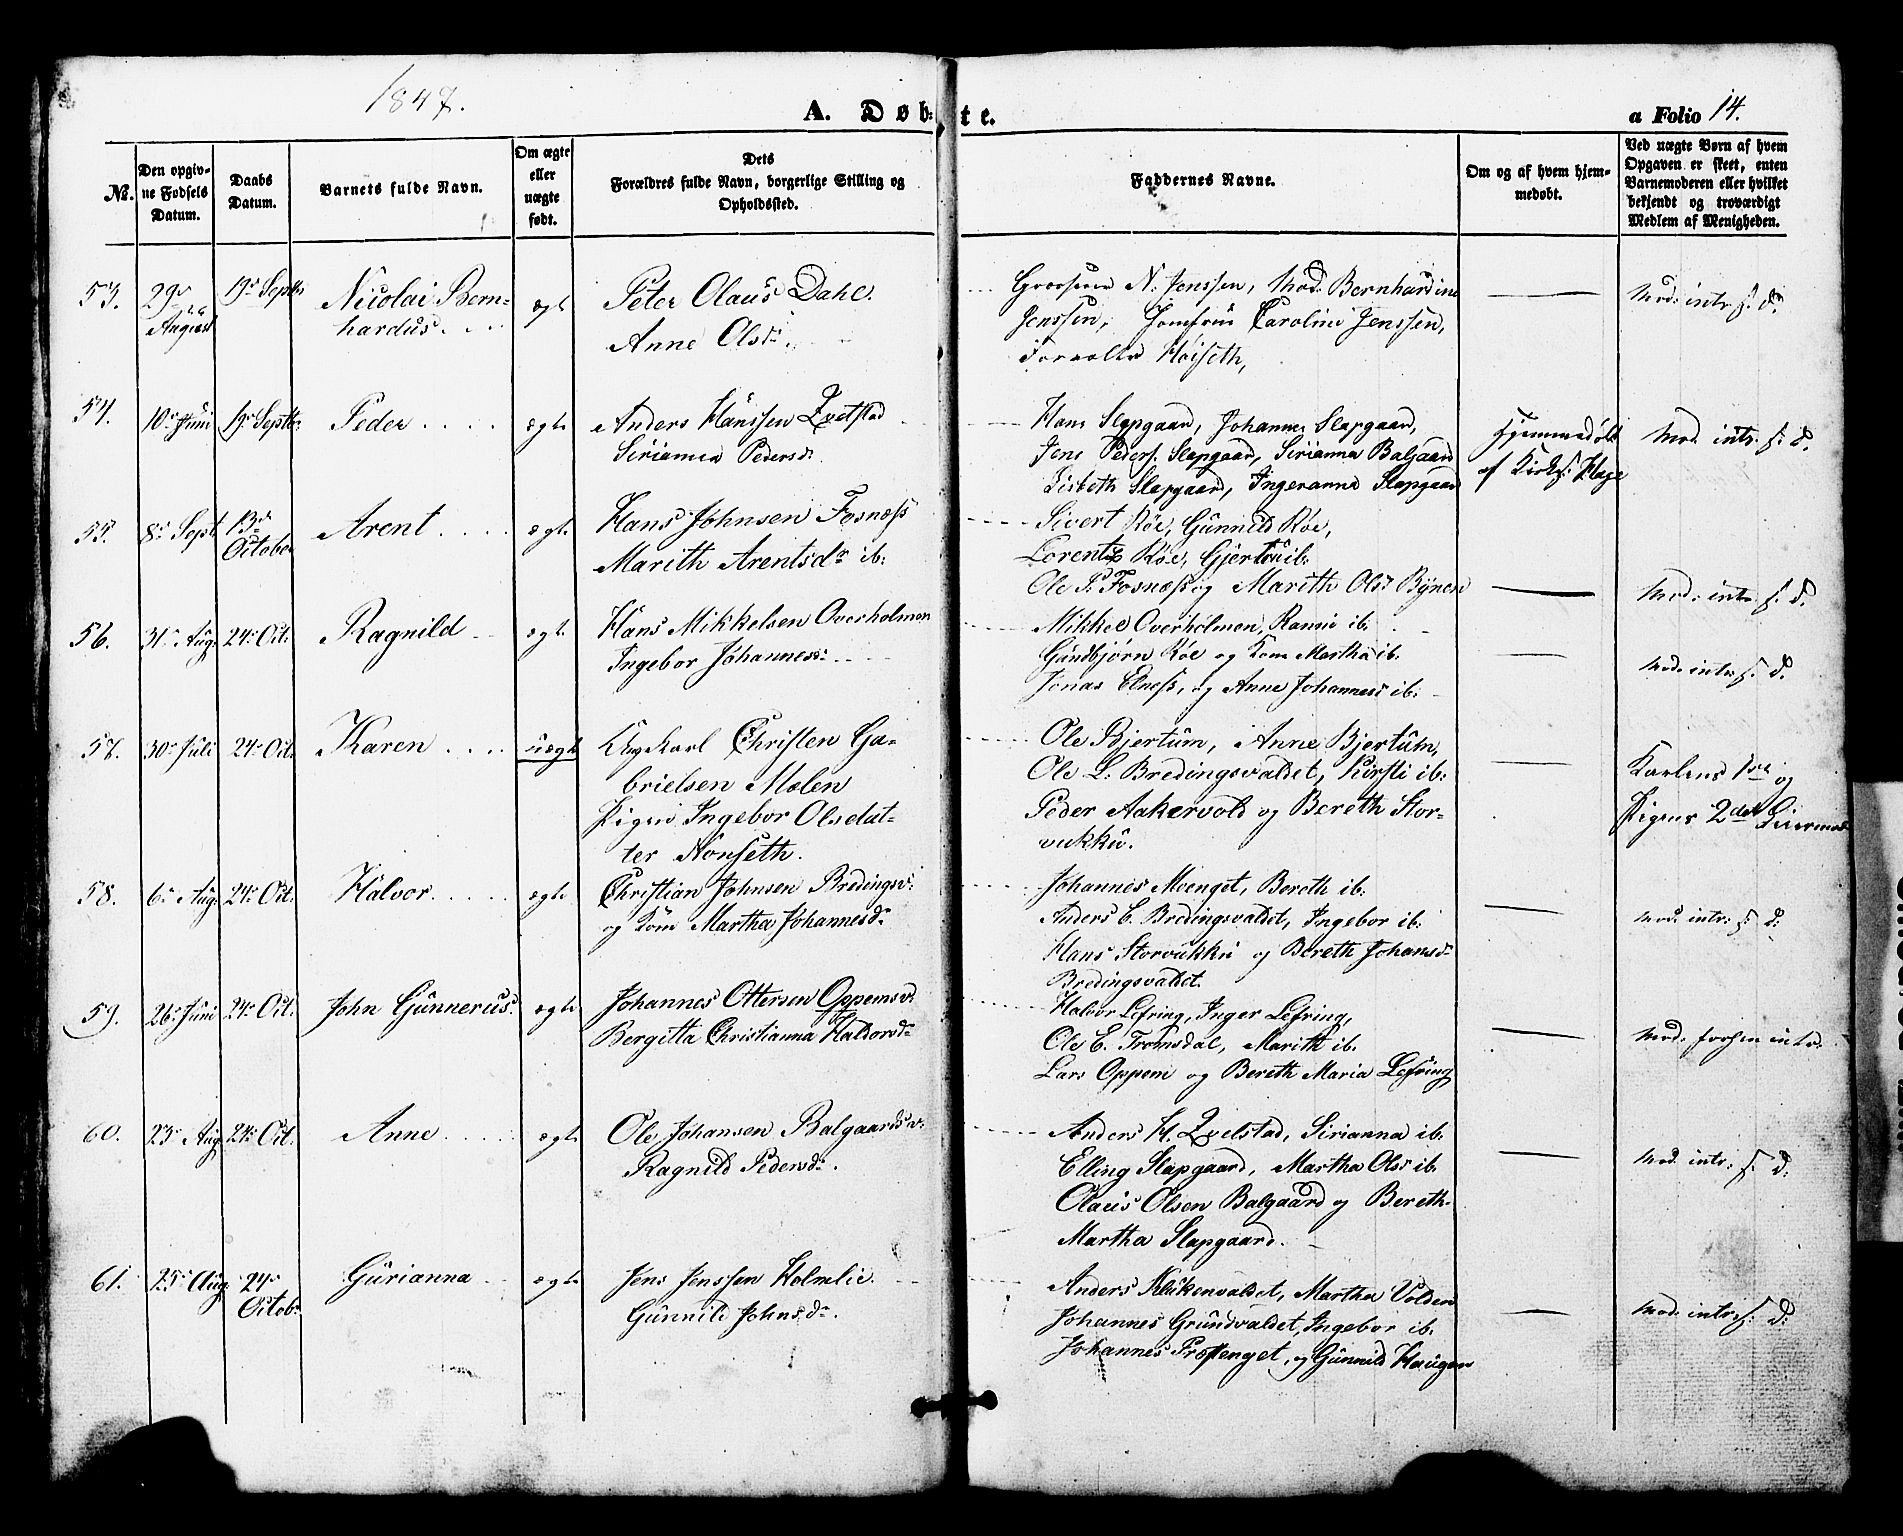 1847.
A. Døbte.
a Folio 14.
No. | Den opgivne Fødsels Datum. | Daabs Datum. | Barnets fulde Navn. | Om ægte eller uægte født. | Dets Forældres fulde Navn, borgerlige Stilling og Opholdssted. | Faddernes Navne. | Om og af hvem hjemmedøbt. | Ved uægte Børn af hvem Opgaven er skeet, enten Barnemoderen eller hvilket bekjendt og troværdigt Medlem af Menigheden.
53. 29de August 19de Septbr Nicolai Bernhardus. ægte
Peter Olaus Dahl.
Anne Olsdr.
N. Jenssen, Mod. Bernhardine
Jenssen, Jomfrue Caroline Jenssen,
Forvalter Høiseth,
— Mod: intr. f: d.
54. 10de Juni 19de Septbr. Peder ægte
Anders Hanssen Qvelstad
Sirianna Pedersdr.
Hans Slapgaard, Johanna Slapgaard,
Jens Peders. Slapgaard, Sirianna Balgaard
Lisbeth Slapgaard, Ingeranna Slapgaard
Hjemmedøbt
af Kirkes. Hage
Mod. intr. f: d.
55. 8de Sept. 13de October Arent ægte
Hans Johnsen Fosnæss
Marith Arentsdr ib:
Sivert Røe, Gunnild Røe,
Lorentz Røe, Gjertru ib.
Ole P. Fosnæss og Marith Olsdr Bynen
— Mod: intr. f: d.
56. 31te Aug. 24de Oct. Ragnild ægte
Hans Mikkelsen Overholmen
Ingebor Johannesdr
Mikkel Overholmen, Ranni ib.
Gundbjørn Røe og Kone Martha ib.
Jonas Elness, og Anne Johannesd ib:
— Mod. intr. f. d.
57. 30te Juli 24de Oct. Karen uægte
Ungkarl Christen Gabrielsen
Molen
Pigen Ingebor Olsdatter
Nonseth.
Ole Bjertum, Anne Bjertum,
Ole L. Bredingsvaldet, Kirsti ib:
Peder Aakervold og Bereth Storvukku.
— Karlens 1ste og
Pigens 2det Leiermaal
58. 6te Aug. 24de Oct. Halvor ægte
Christian Johnsen Bredingsv:
og Kone Martha Johannesdr
Johannes Moenget, Bereth ib:
Anders C. Bredingsvaldet, Ingebor ib:
Hans Storvukku og Bereth Johansdr
Bredingsvaldet.
— Mod. intr: f: d:
59. 26de Juni 24de Oct. John Gunnerus. ægte
Johannes Ottersen Oppemsv.
Bergitta Christianna Haldorsdr
Halvor Lefring, Inger Lefring,
Ole E. Tromsdal, Marith ib.
Lars Oppem og Bereth Maria Lefring
— Mod. forhen intr.
60. 23de Aug. 24de Oct. Anne ægte
Ole Johansen Balgaardsv:
Ragnild Pedersdr.
Anders H. Qvelstad, Sirianna ib.
Elling Slapgaard, Martha Olsd ib.
Olaus Olsen Balgaard og Bereth-
Martha Slapgaard.
— Mod. intr: f. d:
61. 25de Aug. 24de Octobr Gurianna ægte
Jens Jenssen Holmlie.
Gunnild Johnsdr.
Anders Klukenvaldet, Martha Volden
Johannes Grundvaldet, Ingebor ib.
Johannes Præstenget, og Gunnild Haugan
— Mod. intr. f: d: